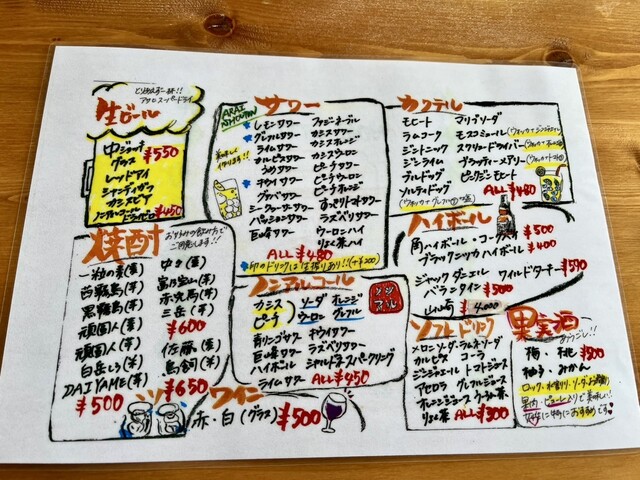 とりあえず一杯!!
アサヒスーパードライ
生ビール
中ジョッキ
グラス
¥550
レッドアイ
シャンディガフ
カシスビア
ノンアルコール
ドライゼロ
¥450
サワー
ARAI
SHOUTEN
美味しく
作ります!!
レモンサワー
グレフルサワー
ライムサワー
カルピスサワー
うめサワー
キウイサワー
グァバサワー
シークヮーサーサワー
パッションサワー
巨峰サワー
ファジーネーブル
カシスサワー
カシスオレンジ
カシスウーロン
ピーチサワー
ピーチウーロン
ピーチオレンジ
すっぴトマトサワー
ラズベリサワー
ウーロンハイ
りょく茶ハイ
ALL ¥480
印のドリンクは生搾りあり!!(+¥200)
カクテル
モヒート
ラムコーク
ジントニック
ジンライム
ブルドッグ
ソルティドッグ
マリブソーダ
モスコミュール
スクリュードライバー
ブラッディーメアリー
ピーチジンモヒート
ALL ¥480
ハイボール
角ハイボール・コークハイ
¥500
ブラックニッカハイボール
¥400
ジャックダニエル
ワイルドターキー
¥550
バランタイン
¥500
山崎
¥1,000
焼酎
お好みの飲み方で
ご用意します!!
一粒の麦(麦)
茜霧島(芋)
黒霧島(芋)
頑固人(麦)
頑固人(芋)
白岳しろ(米)
DAIYAME(芋)
¥500
中々(麦)
富乃宝山(芋)
赤兎馬(芋)
三岳(芋)
¥600
佐藤(芋)
鳥飼(米)
¥650
ノンアルコール
ノンアル
カシス
ピーチ
ソーダ
ウーロン
オレンジ
グレフル
青リンゴサワー
巨峰サワー
ハイボール
ライムサワー
キウイサワー
ラズベリサワー
シャルドネスパークリング
ALL ¥450
ワイン
赤・白(グラス)
¥500
ソフトドリンク
メロンソーダ・ラムネソーダ
カルピス
コーラ
ジンジャエール
トマトジュース
アセロラ
グレフルジュース
オレンジジュース
ウーロン茶
りょく茶
ALL ¥300
果実酒
梅・桃
¥500
柚子・みかん
ロック、水割り、ソーダ、お湯割
果肉・ピューレ入りで美味しい!
女性に特におすすめです♥